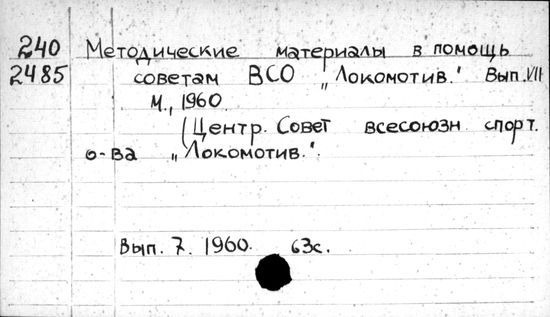 240 Методические материалы в помощь
2485 советам ВСО „Локомотив." Вып. VII
М., 1960.
(Центр. Совет всесоюзн спорт.
о-ва „Локомотив.".
Вып. 7. 1960. 63с.